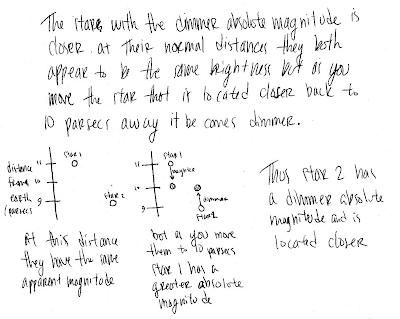 The stars with the dimmer absolute magnitude is
closer. at their normal distances they both
appear to be the same brightness but as you
move the star that is located closer back to
10 parsecs away it becomes dimmer.
distance
from
earth
(parsecs
11
10
9
star 1
star 2
11
10
9
star 1
brighter
dimmer
star 2
At this distance
they have the same
apparent magnitude
but as you move
them to 10 parsecs
star 1 has a
greater absolute
magnitude
Thus star 2 has
a dimmer absolute
magnitude and is
located closer